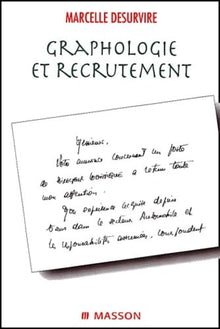 MARCELLE DESURVIRE
GRAPHOLOGIE
ET RECRUTEMENT
Monsieur,
Votre annonce concernant un poste
de Directeur Commercial a retenu toute
mon attention.
Mon expérience acquise depuis
ans dans le secteur Automobile et
les responsabilités assumées, correspondent
MASSON